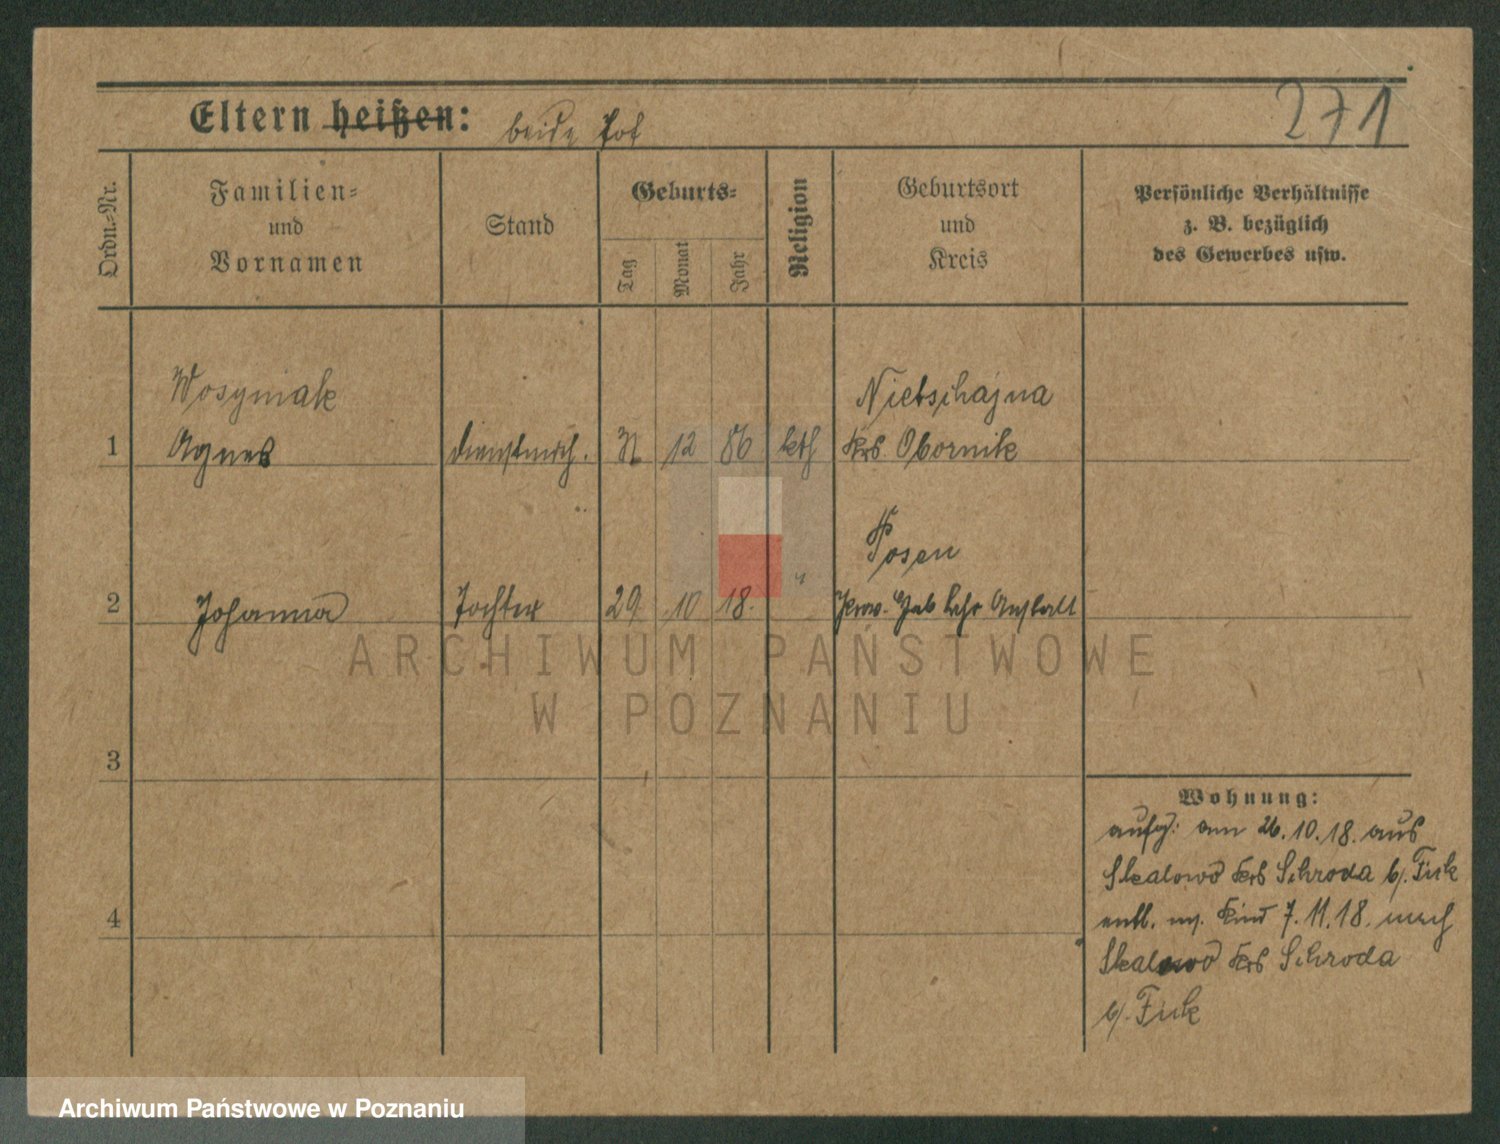 271
Eltern heißen: beide tot
Ordn.-Nr.
Familien-
und
Vornamen
Stand
Geburts-
Tag
Monat
Jahr
Religion
Geburtsort
und
Kreis
Persönliche Verhältnisse
z. B. bezüglich
des Gewerbes usw.
Wosyniak
Nietschajna
1 Agnes dienstmdch. 12 86 kth Krs. Obornik
Posen
2 Johanna Tochter 29 10 18. " Prov. Heb Lehr Anstalt
3
4
Wohnung:
aufg: am 26.10.18. aus
Skalowo Krs Schroda b/. Fick
entl. m/. Kind 7.11.18. nach
Skalowo Krs Schroda
b/. Fick
ARCHIWUM PAŃSTWOWE
W POZNANIU
Archiwum Państwowe w Poznaniu